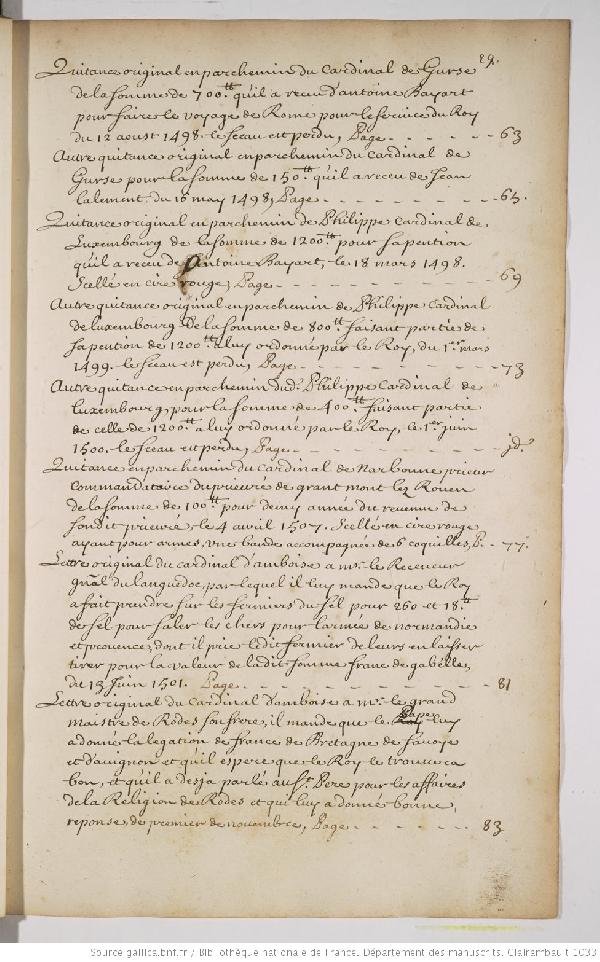 29.
Quitance original en parchemin du Cardinal de Gurse
de la somme de 700.tt qu'il a receu d'antoine Bayart
pour faire le voyage de Rome pour le service du Roy
du 12 aoust 1498. le sceau est perdu, Page. - - - - - - 63
Autre quitance original en parchemin du Cardinal de
Gurse pour la somme de 150.tt qu'il a receu de Jean
Lalement. du 16 may 1498, Page - - - - - - 65.
Quitance original en parchemin de Philippe Cardinal de
Luxembourg de la somme de 1200.tt pour sa pention
qu'il a receu de Antoine Bayart, le 18 mars 1498.
Scellé en cire rouge, Page - - - - - - 69
Autre quitance original en parchemin de Philippe Cardinal
de luxembourg de la somme de 800.tt faisant partie de
sa pention de 1200.tt a luy ordonné par le Roy, du 1.er mars
1499. le sceau est perdu, Page - - - - - - 73
Autre quitance en parchemin dud. Philippe Cardinal de
Luxembourg, pour la somme de 400.tt faisant partie
de celle de 1200.tt a luy ordonné par le Roy, le 1.er juin
1500. le sceau est perdu, Page - - - - - - jd.
Quitance en parchemin du Cardinal de Narbonne prieur
commandataire du prieuré de grant mont lez Rouen
de la somme de 100.tt pour demy année du revenu de
son dit prieuré, le 4 avril 1507. Scellé en cire rouge
ayant pour armes, une bande accompagnée de 6 coquilles, P. - 77.
Lettre original du Cardinal d'amboise a mr. le Receveur
gnāl du languedoc, par lequel il luy mande que le Roy
a fait prendre sur les fermiers du sel pour 260 et 18.tt
de sel pour saler les chers pour l'armée de normandie
et provence, dont il prie ledit fermier de leurs en laisser
tirer pour la valeur de ladit somme franc de gabelle,
du 13 Juin 1501. Page - - - - - - 81
Lettre original du Cardinal d'amboise a mr. le grand
maistre de Rodes son frere, il mande que le Pape luy
a donné la legation de france de Bretagne de savoye
et d'avignon et qu'il espere que le Roy le trouvera
bon, et qu'il a desja parlé au St. Pere pour les affaires
de la Religion de Rodes et qui luy a donné bonne
reponse, de premier de novembre, Page - - - - - - 83
Source gallica.bnf.fr / Bibliothèque nationale de France. Département des manuscrits. Clairambault 1033